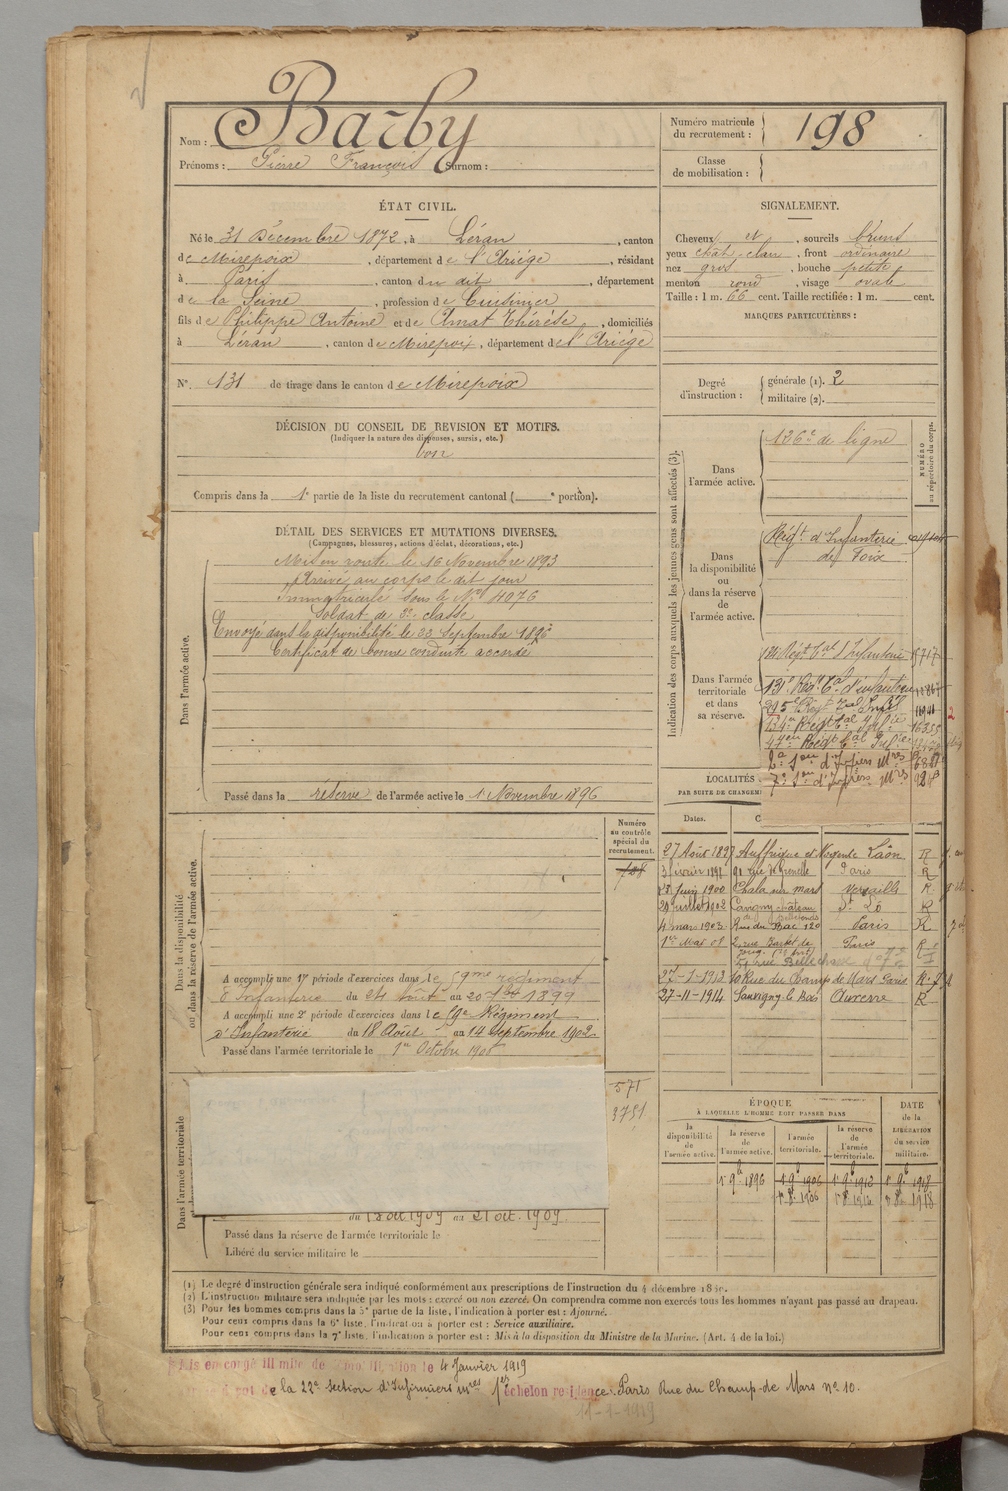 Nom : Barby
Prénoms : Pierre François Surnom :
Numéro matricule du recrutement : 198
Classe de mobilisation :
ÉTAT CIVIL.
Né le 31 Décembre 1872, à Léran, canton
de Mirepoix, département de l'Ariége, résidant
à Paris, canton du dit, département
de la Seine, profession de Cuisinier
fils de Philippe Antoine et de Amat Thérèse, domiciliés
à Léran, canton de Mirepoix, département de l'Ariége
N° 131 de tirage dans le canton de Mirepoix
SIGNALEMENT.
Cheveux et, sourcils bruns
yeux chât. clair, front ordinaire
nez gros, bouche petite
menton rond, visage ovale
Taille : 1 m. 66 cent. Taille rectifiée : 1 m. cent.
MARQUES PARTICULIÈRES :
Degré d'instruction : générale (1). 2
militaire (2).
DÉCISION DU CONSEIL DE REVISION ET MOTIFS.
(Indiquer la nature des dispenses, sursis, etc.)
bon
Compris dans la 1e partie de la liste du recrutement cantonal ( e portion).
DÉTAIL DES SERVICES ET MUTATIONS DIVERSES.
(Campagnes, blessures, actions d'éclat, décorations, etc.)
Dans l'armée active.
Mis en route le 16 Novembre 1893
Arrivé au corps le dit jour
Immatriculé sous le N° 4076
Soldat de 2e classe
Envoyé dans la disponibilité le 23 Septembre 1896
Certificat de bonne conduite accordé
Passé dans la réserve de l'armée active le 1 Novembre 1896
Indication des corps auxquels les jeunes gens sont affectés (3).
NUMÉRO au répertoire du corps.
Dans l'armée active.
126e de ligne
Dans la disponibilité ou dans la réserve de l'armée active.
Régt. d'Infanterie
de Foix
Dans l'armée territoriale et dans sa réserve.
Régt Tal d'Infanterie
131e Régt Tal d'infanterie
16355
LOCALITÉS
PAR SUITE DE CHANGEM
Dates.
27 Août 1897 Auffrique et Nogent Laôn R
91 rue de Grenelle Paris R
Juin 1900 Chala sur mars Versaille R
juillet 1902 Cavigny château St Lô R
4 mars 1903 Rue du Bac 120 Paris R
1er Mai 08 Paris R
10 Rue du Champ de Mars Paris R
27-11-1914 Sauvigny le Bois Auxerre R
Dans la disponibilité ou dans la réserve de l'armée active.
Numéro au contrôle spécial du recrutement.
A accompli une 1re période d'exercices dans le 59me régiment
d'Infanterie du 24 août au 20 7bre 1899
A accompli une 2e période d'exercices dans le 59e Régiment
d'Infanterie du 18 Août au 14 Septembre 1902
Passé dans l'armée territoriale le 1er Octobre 1906
571
3751
Dans l'armée territoriale
du 13 oct 1909 au 21 oct. 1909.
Passé dans la réserve de l'armée territoriale le
Libéré du service militaire le
ÉPOQUE
À LAQUELLE L'HOMME DOIT PASSER DANS
la disponibilité de l'armée active.
la réserve de l'armée active.
l'armée territoriale.
la réserve de l'armée territoriale.
DATE de la LIBÉRATION du service militaire.
1er 9b 1896 1er 9b 1906 1er 9b 1912 1er 9b 1918
1er 8b 1906 1er 8b 1912 1er 8b 1918
(1) Le degré d'instruction générale sera indiqué conformément aux prescriptions de l'instruction du 4 décembre 1889.
(2) L'instruction militaire sera indiquée par les mots : exercé ou non exercé. On comprendra comme non exercés tous les hommes n'ayant pas passé au drapeau.
(3) Pour les hommes compris dans la 5e partie de la liste, l'indication à porter est : Ajourné.
Pour ceux compris dans la 6e liste, l'indication à porter est : Service auxiliaire.
Pour ceux compris dans la 7e liste, l'indication à porter est : Mis à la disposition du Ministre de la Marine. (Art. 4 de la loi.)
Mis en congé illimité de démobilisation le 4 Janvier 1919
de la 22e Section d'Infirmiers mres 1er échelon résidence : Paris Rue du Champ-de Mars n° 10.
11-1-1919